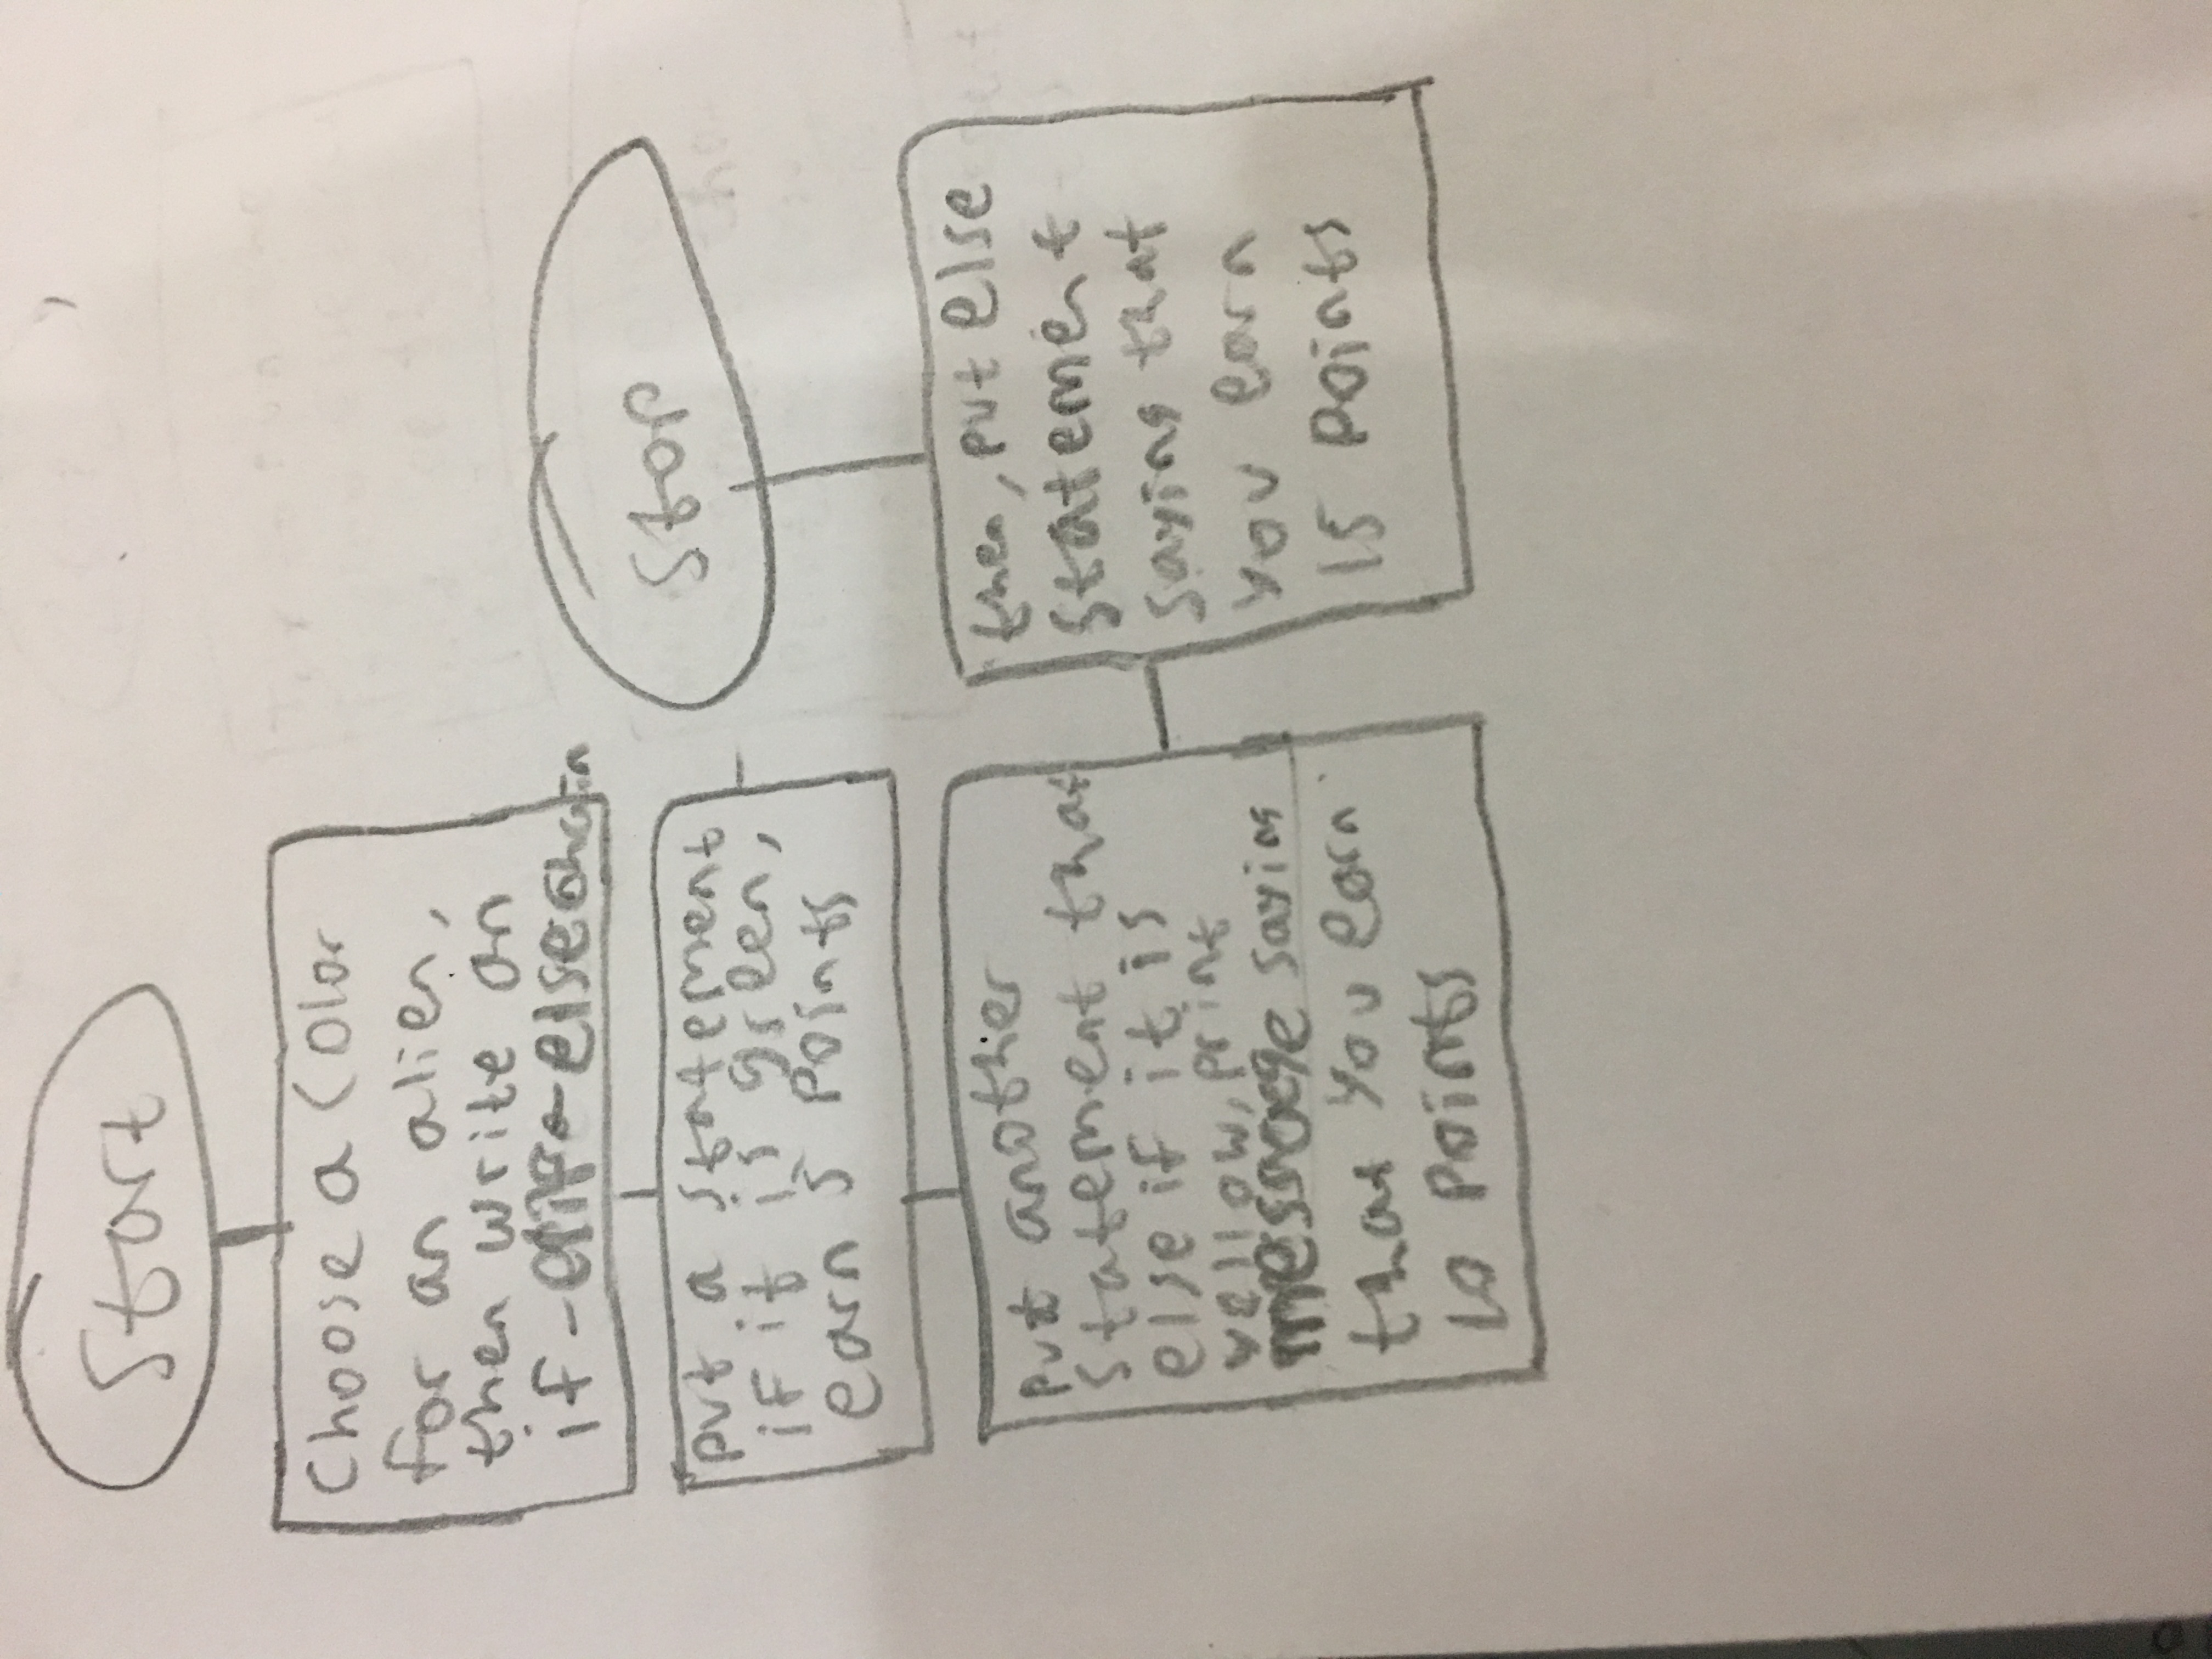 Start
Choose a Color
for an alien,
then write an
if-elif-else chain
put a statement
if it is green,
earn 5 points
put another
statement that
else if it is
yellow, print
message saying
that you earn
10 points
then, put else
statement
saying that
you earn
15 points
Stop